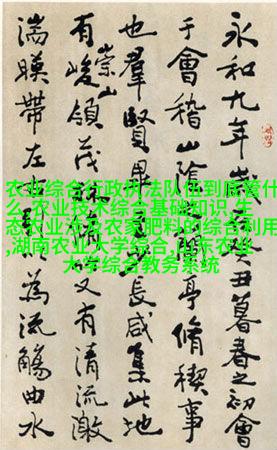 永和九年歲癸丑暮春之初會
于會稽山陰蘭亭脩稧事
也羣賢畢長咸集此地
有崇山峻領茂又有清流激
湍暎帶左為流觴曲水
农业综合行政执法队伍到底管什
么,农业技术综合基础知识,生
态农业涉及农家肥料的综合利用
,湖南农业大学综合,山东农业
大学综合教务系统